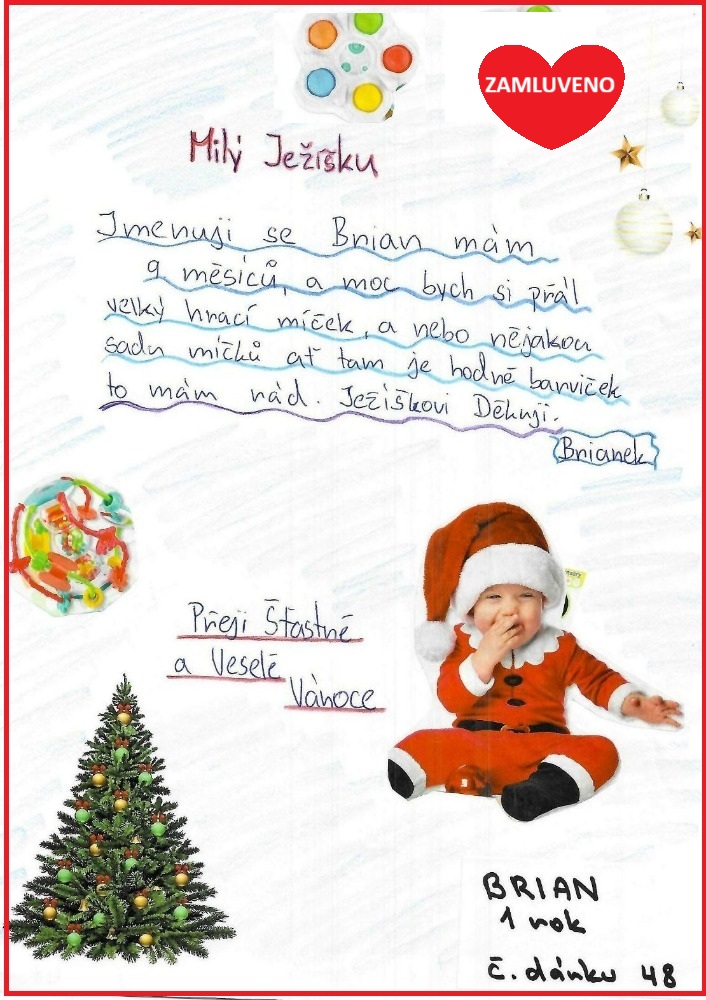 ZAMLUVENO
Milý Ježíšku
Jmenuji se Brian mám
9 měsíců, a moc bych si přál
velký hrací míček, a nebo nějakou
sadu míčků ať tam je hodně barviček
to mám rád. Ježíškovi Děkuji.
Brianek
Přeji Šťastné
a Veselé
Vánoce
BRIAN
1 rok
č. dárku 48